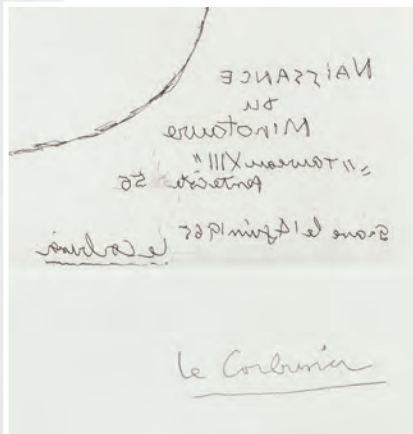 NAISSANCE
du
MINOTAURE
"TAUREAU XIII"
Pentecôte 56
Gravé le 14 juin 1965
Le Corbusier
Le Corbusier